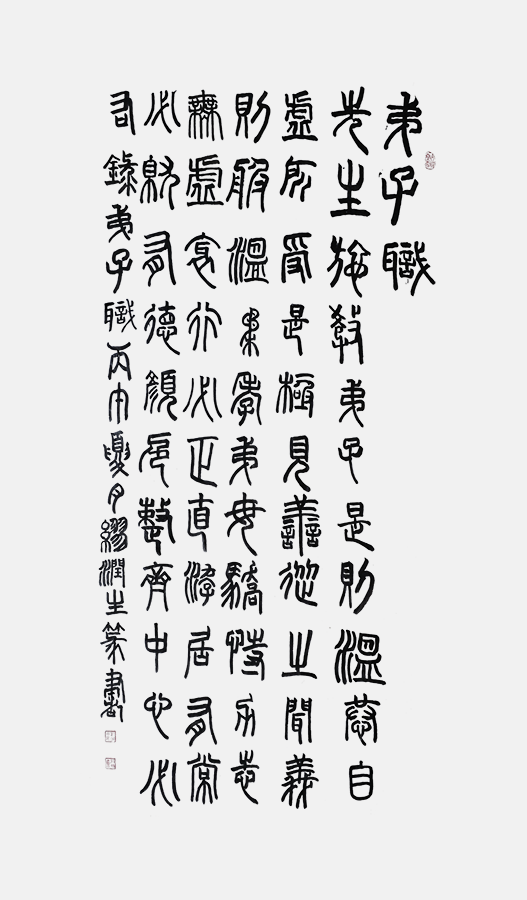 弟子職
先生施教弟子是則溫恭自
虛所受是極見善從之聞義
則服溫柔孝弟毋驕恃力志
無虛邪行必正直游居有常
必就有德顏色整齊中心必
式錄弟子職丙申夏月繆潤生篆書